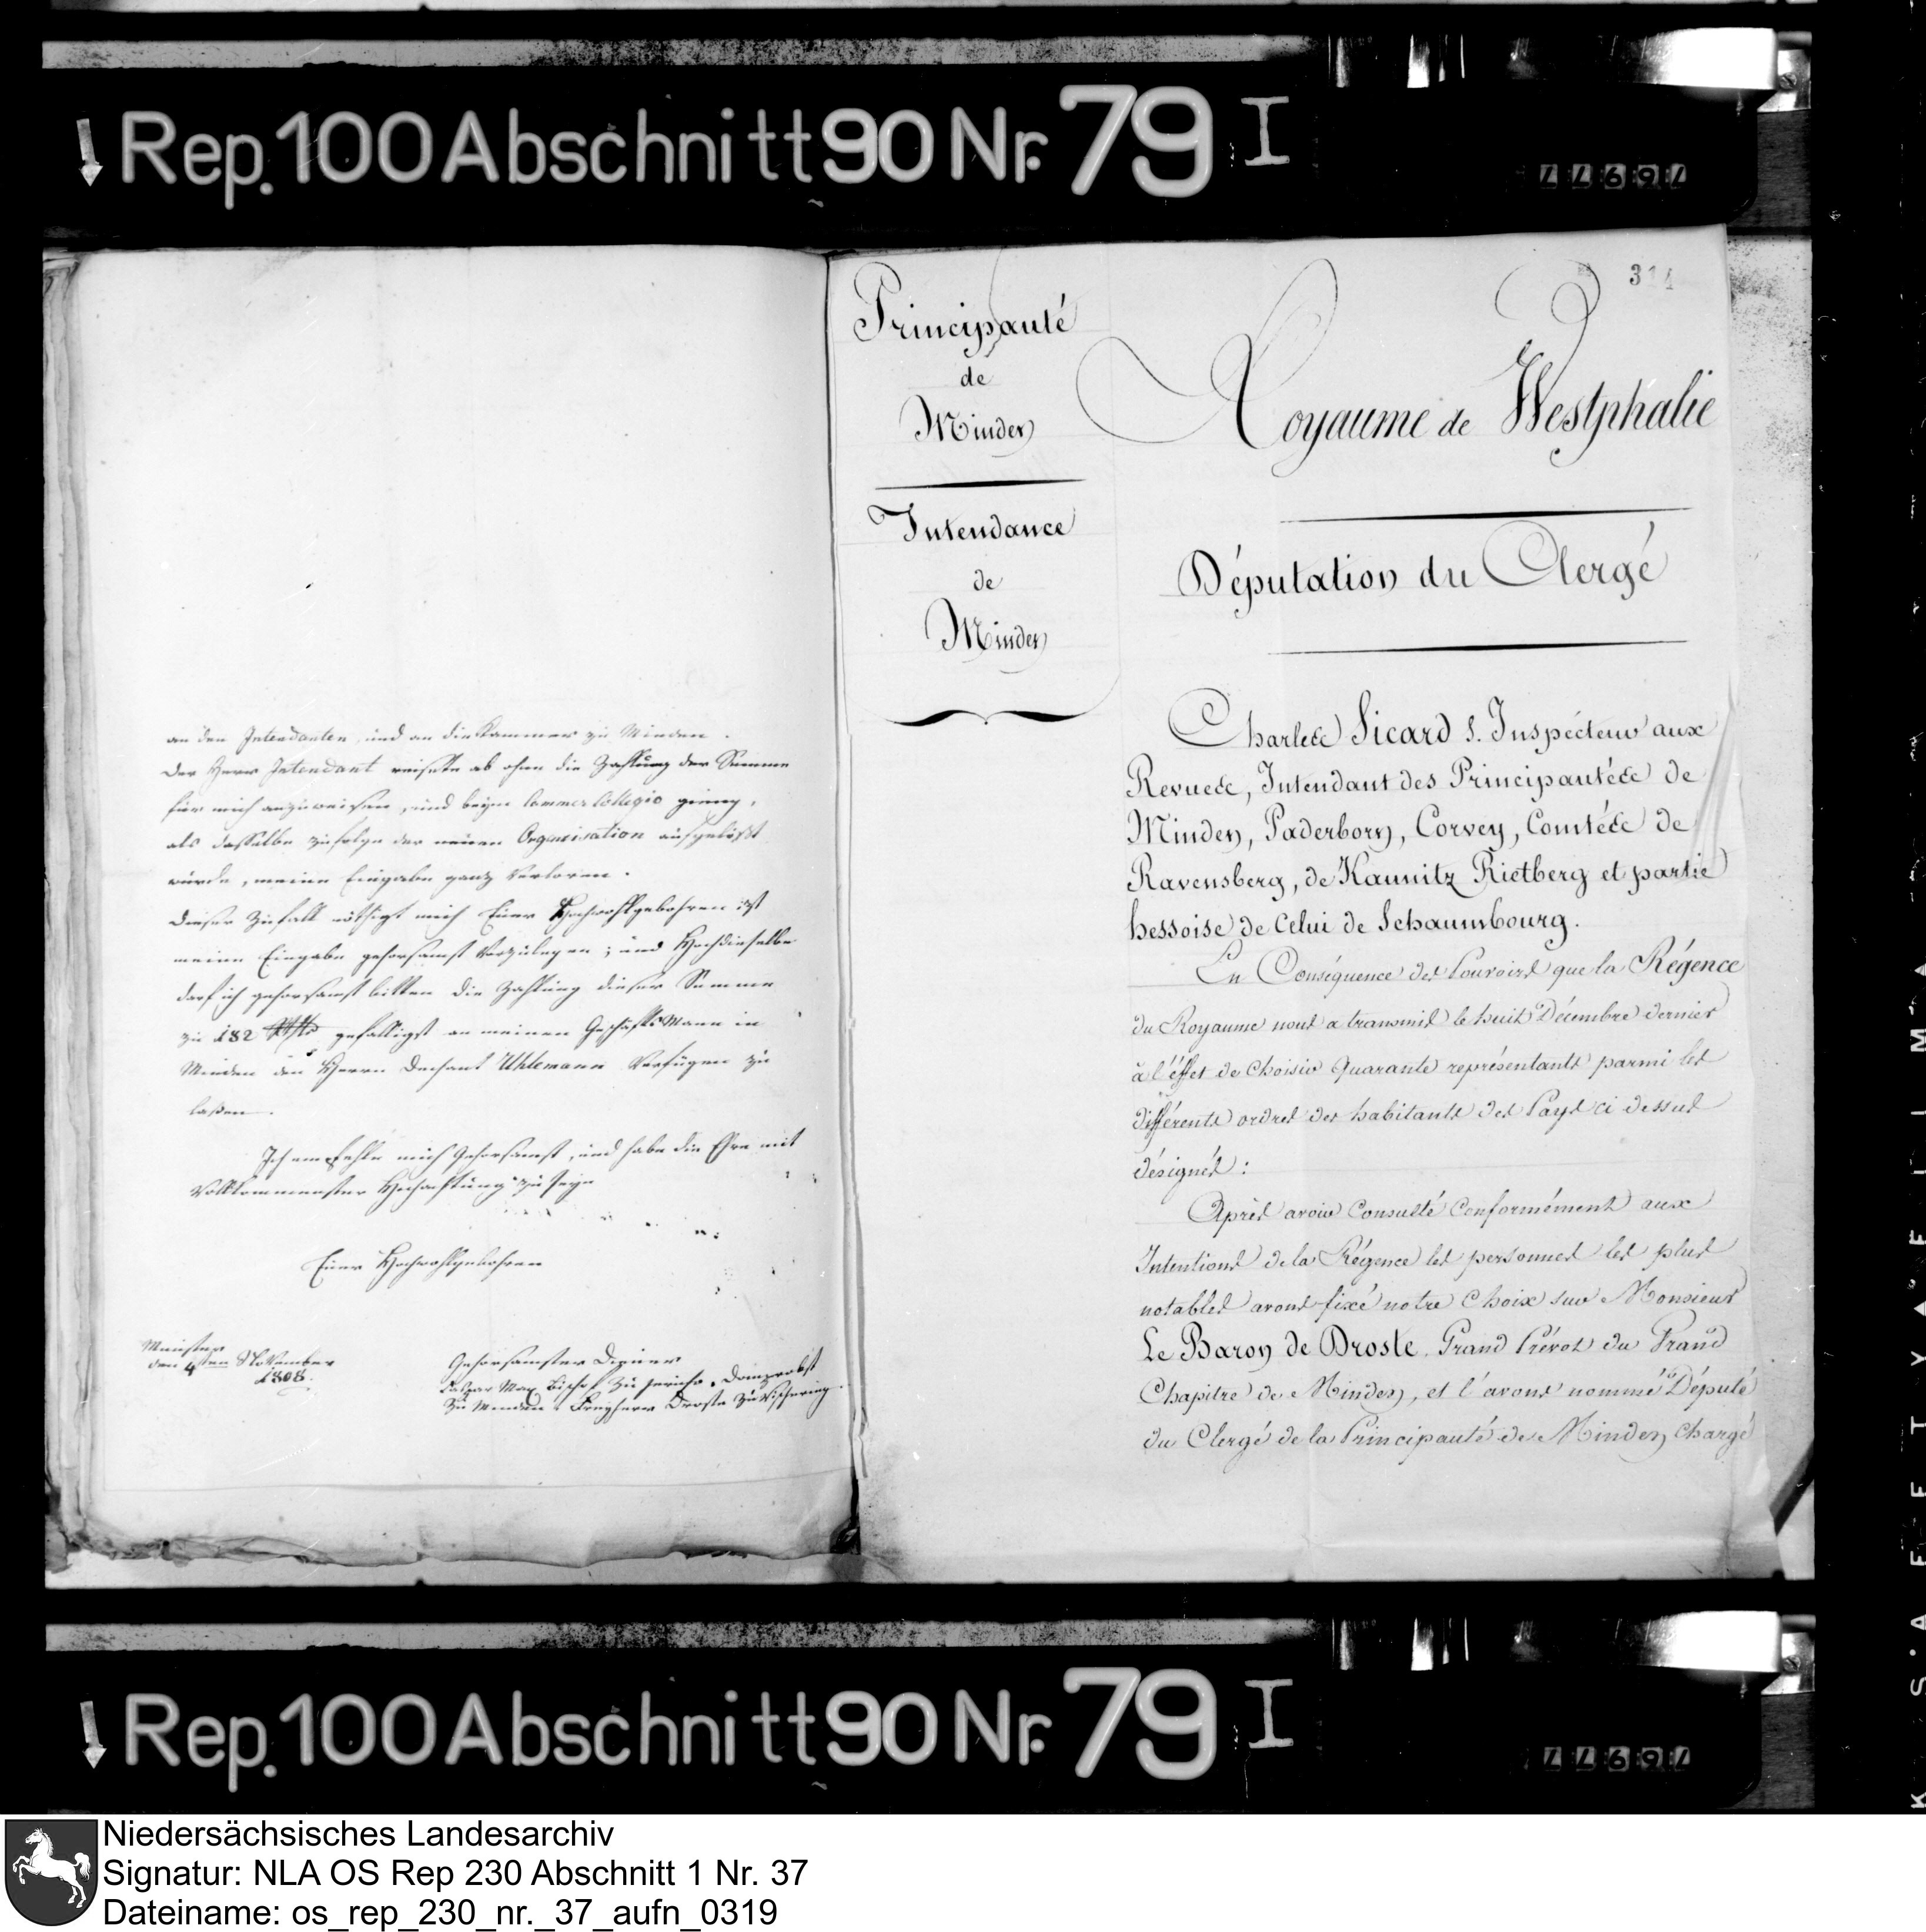 Rep. 100 Abschnitt 90 Nr. 79 I
77691
an den Intendanten, und an die Kammer zu Minden.
Der Herr Intendant reisete ab ohne die Zahlung der Summe
für mich anzuweisen, und beym Cammer Collegio gieng,
als dasselbe zufolge der neuen Organisation aufgelößt
würde, meine Eingabe ganz verloren.
Dieser Zufall nöthigt mich Euer Hochwohlgebohren izt
meine Eingabe gehorsamst vorzulegen; und Hochdieselbe
darf ich gehorsamst bitten die Zahlung dieser Summe
zu 182 gefälligst an meinen Geschäfts Mann in
Minden den Herrn Dechant Uhlemann verfügen zu
laßen.
Ich empfehle mich gehorsamst, und habe die Ehre mit
vollkommenster Hochachtung zu seyn
Euer Hochwohlgebohren
Münster
den 4ten November
1808.
Gehorsamster Diener
Caspar Max Bischof zu Jericho, Domprobst
zu Minden, Freyherr Droste zu Vischering.
314
Principauté
de
Minden
Intendance
de
Minden
Royaume de Westphalie
Députation du Clergé
Charles Sicard S. Inspécteur aux
Revues, Intendant des Principautés de
Minden, Paderborn, Corvey, Comtés de
Ravensberg, de Kaunitz Rietberg et partie
hessoise de Celui de Schaumbourg.
En Conséquence des Pouvoirs que la Régence
du Royaume nous a transmis le huit Décembre dernier
à l'éffet de Choisir Quarante représentants parmi les
différents ordres des habitants des Pays ci dessus
désignés:
Après avoir Consulté Conformément aux
Intentions de la Régence les personnes les plus
notables avons fixé notre Choix sur Monsieur
Le Baron de Droste Grand Prévot du Grand
Chapitre de Minden, et l'avons nommé Député
du Clergé de la Principauté de Minden, Chargé
Rep. 100 Abschnitt 90 Nr. 79 I
77691
Niedersächsisches Landesarchiv
Signatur: NLA OS Rep 230 Abschnitt 1 Nr. 37
Dateiname: os_rep_230_nr._37_aufn_0319